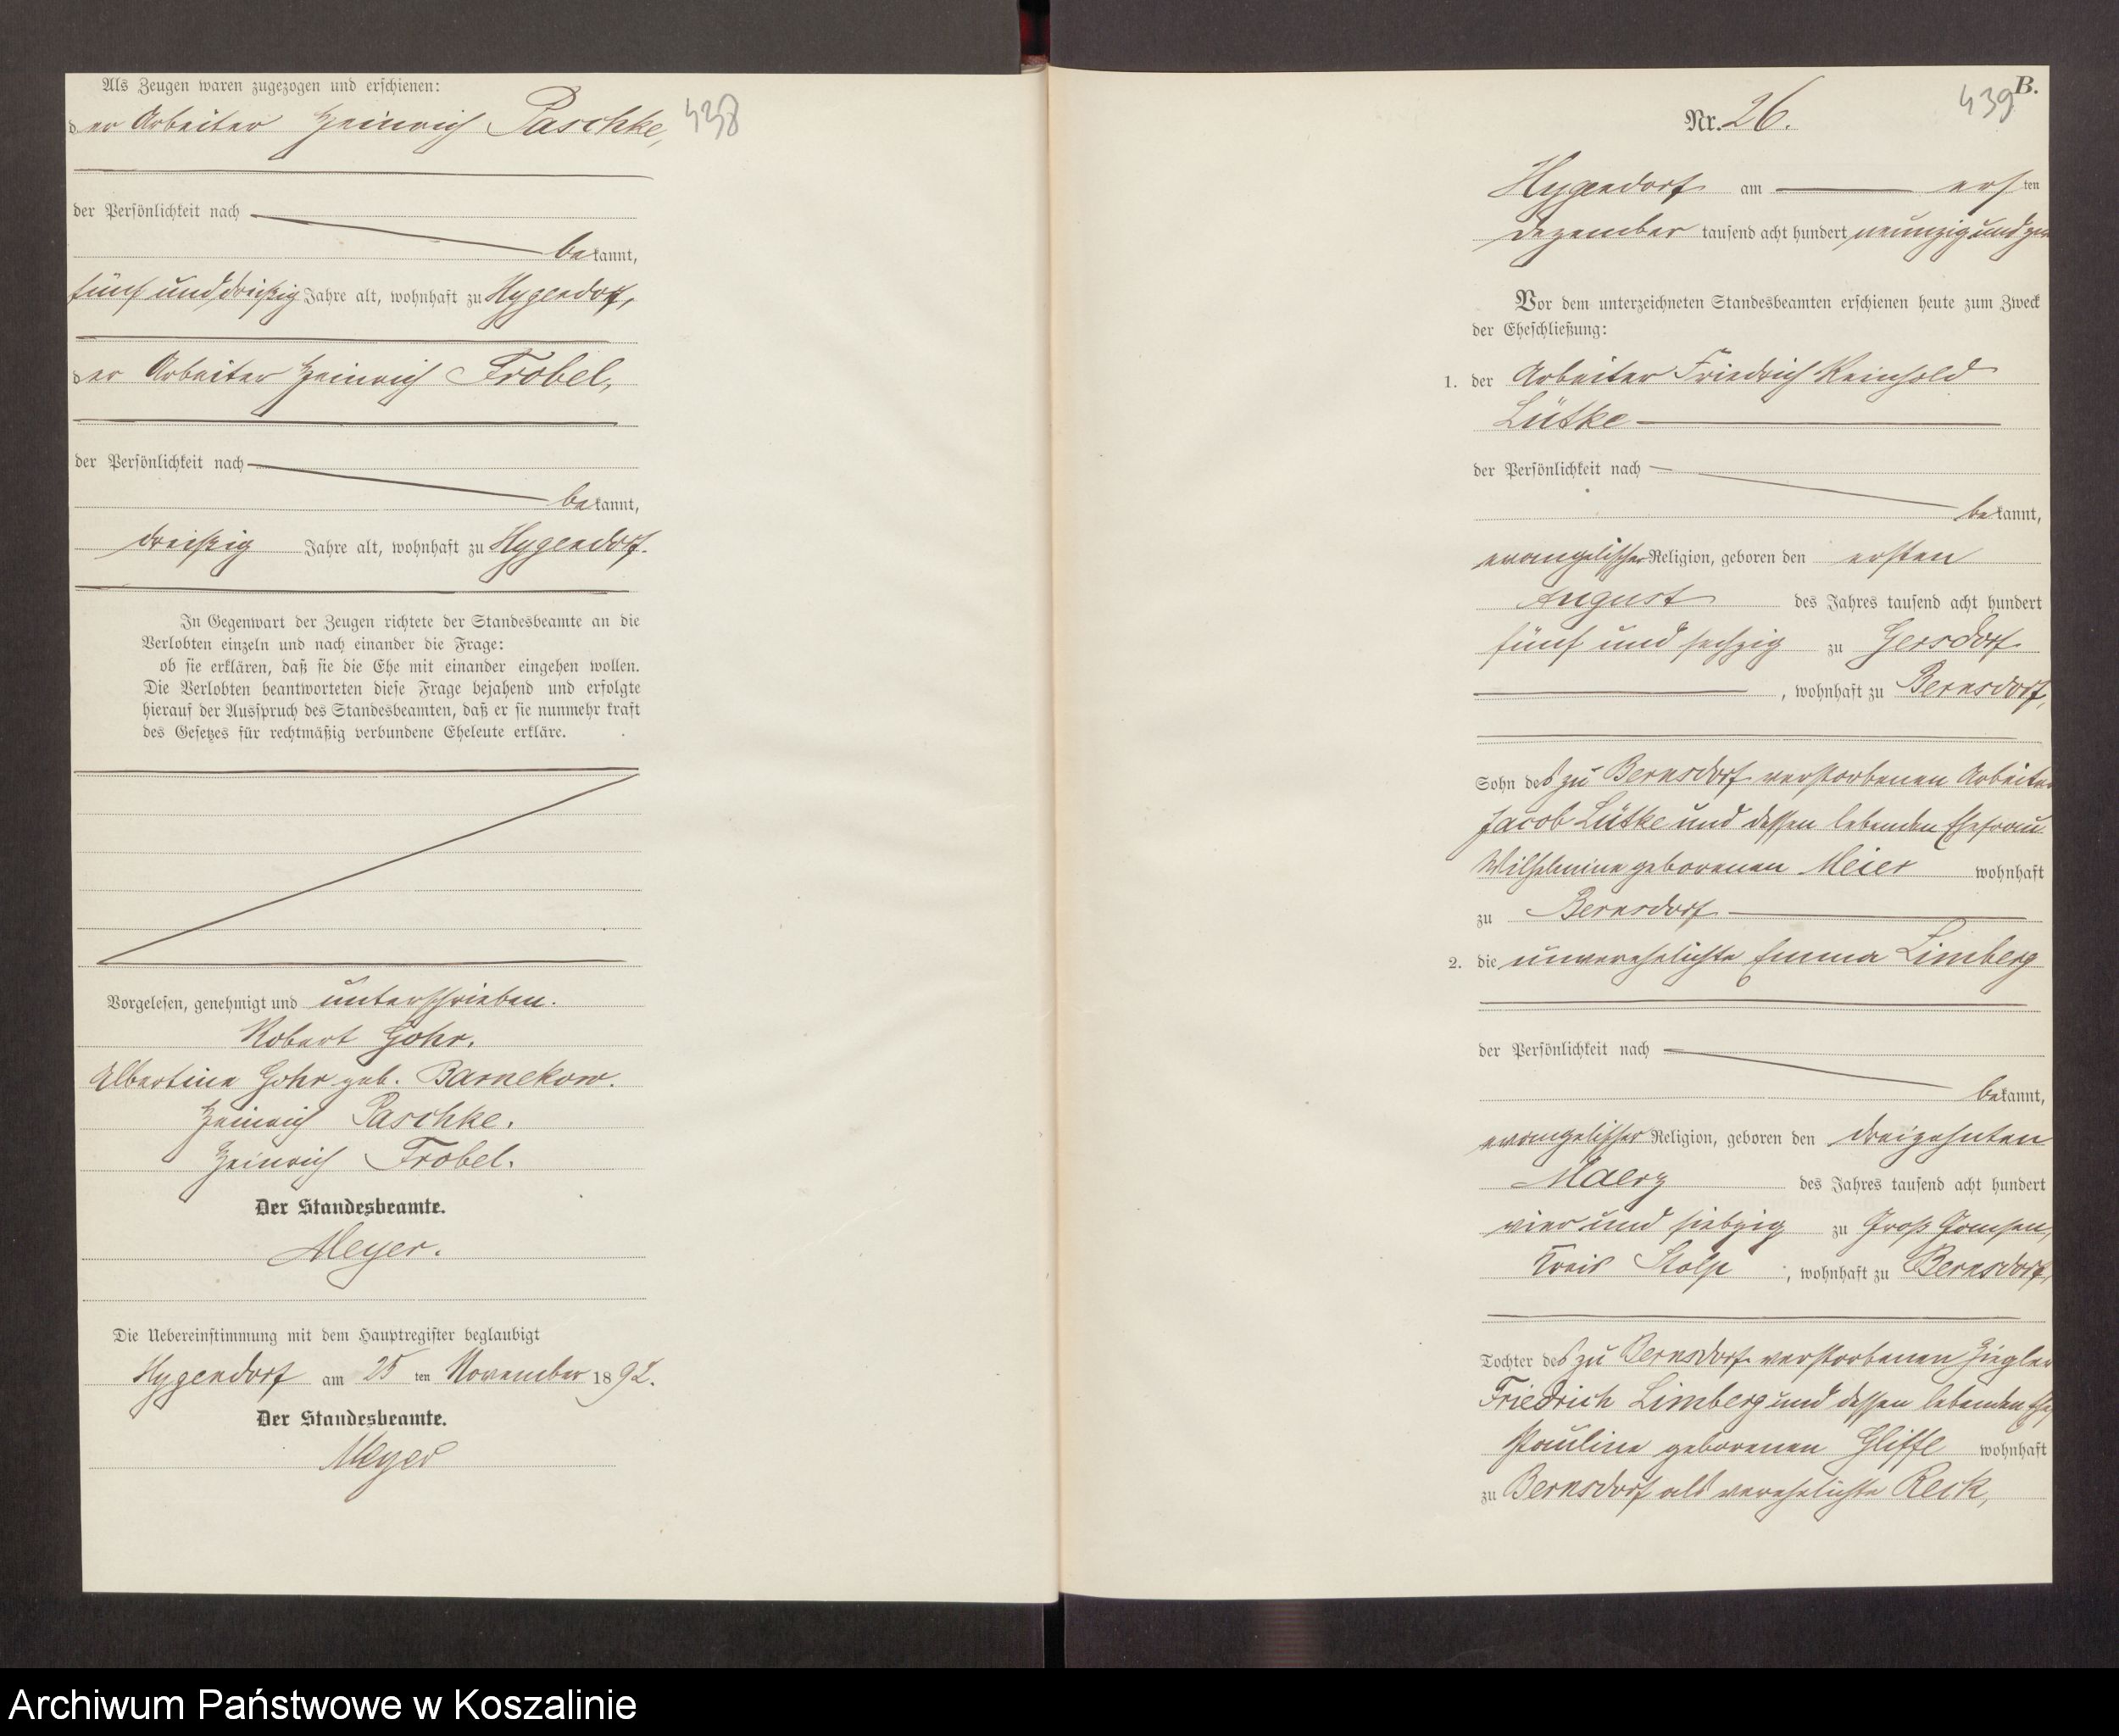 Als Zeugen waren zugezogen und erschienen:
der Arbeiter Heinrich Paschke,
438
der Persönlichkeit nach
bekannt,
fünf und dreißig Jahre alt, wohnhaft zu Hygendorf,
der Arbeiter Heinrich Frobel,
der Persönlichkeit nach
bekannt,
dreißig Jahre alt, wohnhaft zu Hygendorf.
In Gegenwart der Zeugen richtete der Standesbeamte an die
Verlobten einzeln und nach einander die Frage:
ob sie erklären, daß sie die Ehe mit einander eingehen wollen.
Die Verlobten beantworteten diese Frage bejahend und erfolgte
hierauf der Ausspruch des Standesbeamten, daß er sie nunmehr kraft
des Gesetzes für rechtmäßig verbundene Eheleute erkläre.
Vorgelesen, genehmigt und unterschrieben.
Robert Gohr.
Albertine Gohr geb. Barnekow.
Heinrich Paschke.
Heinrich Frobel.
Der Standesbeamte.
Meyer.
Die Uebereinstimmung mit dem Hauptregister beglaubigt
Hygendorf am 25 ten November 1892.
Der Standesbeamte.
Meyer
B.
439
Nr. 26.
Hygendorf am ersten
Dezember tausend acht hundert neunzig und
Vor dem unterzeichneten Standesbeamten erschienen heute zum Zweck
der Eheschließung:
1. der Arbeiter Friedrich Reinhold
Lütke
der Persönlichkeit nach
bekannt,
evangelischer Religion, geboren den ersten
August des Jahres tausend acht hundert
fünf und sechzig zu Gersdorf
, wohnhaft zu Bernsdorf,
Sohn des zu Bernsdorf verstorbenen Arbeiter
Jacob Lütke und dessen lebenden Ehefrau
Wilhelmine geborenen Meier wohnhaft
zu Bernsdorf
2. die unverehelichte Emma Limberg
der Persönlichkeit nach
bekannt,
evangelischer Religion, geboren den dreizehnten
Maerz des Jahres tausend acht hundert
vier und siebzig zu Groß Gansen,
Kreis Stolp, wohnhaft zu Bernsdorf,
Tochter des zu Bernsdorf verstorbenen Ziegler
Friedrich Limberg und dessen lebenden
Pauline geborenen Gliffe wohnhaft
zu Bernsdorf als verehelichte Reck,
Archiwum Państwowe w Koszalinie